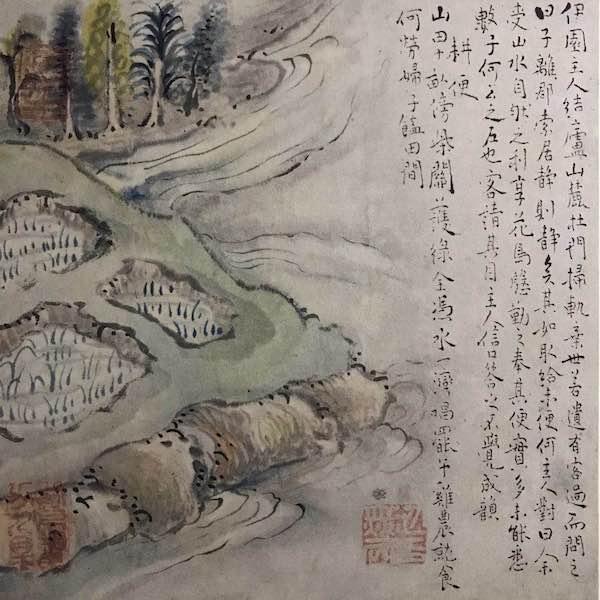 伊園主人結廬山麓杜門掃軌棄世若遺有客過而問之
曰子離群索居静則静矣其如取給未便何主人對曰余
受山水自然之利享花鳥慇勤之奉其便實多未能悉
數子何云之左也客請其目主人信口答之不覺成韻
耕便
山田十畝傍柴關護緑全憑水一湾唱罷午雞農就食
何勞婦子饁田間